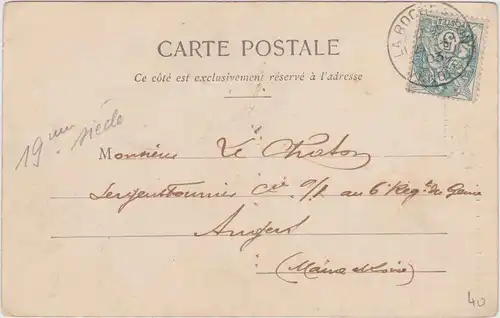 CARTE POSTALE
Ce côté est exclusivement réservé à l'adresse
LA ROCHE
5
19ème siècle
Monsieur Le
Sergent fourrier Cie au 6e Reg. du Génie
Angers
(Maine et Loire)
40